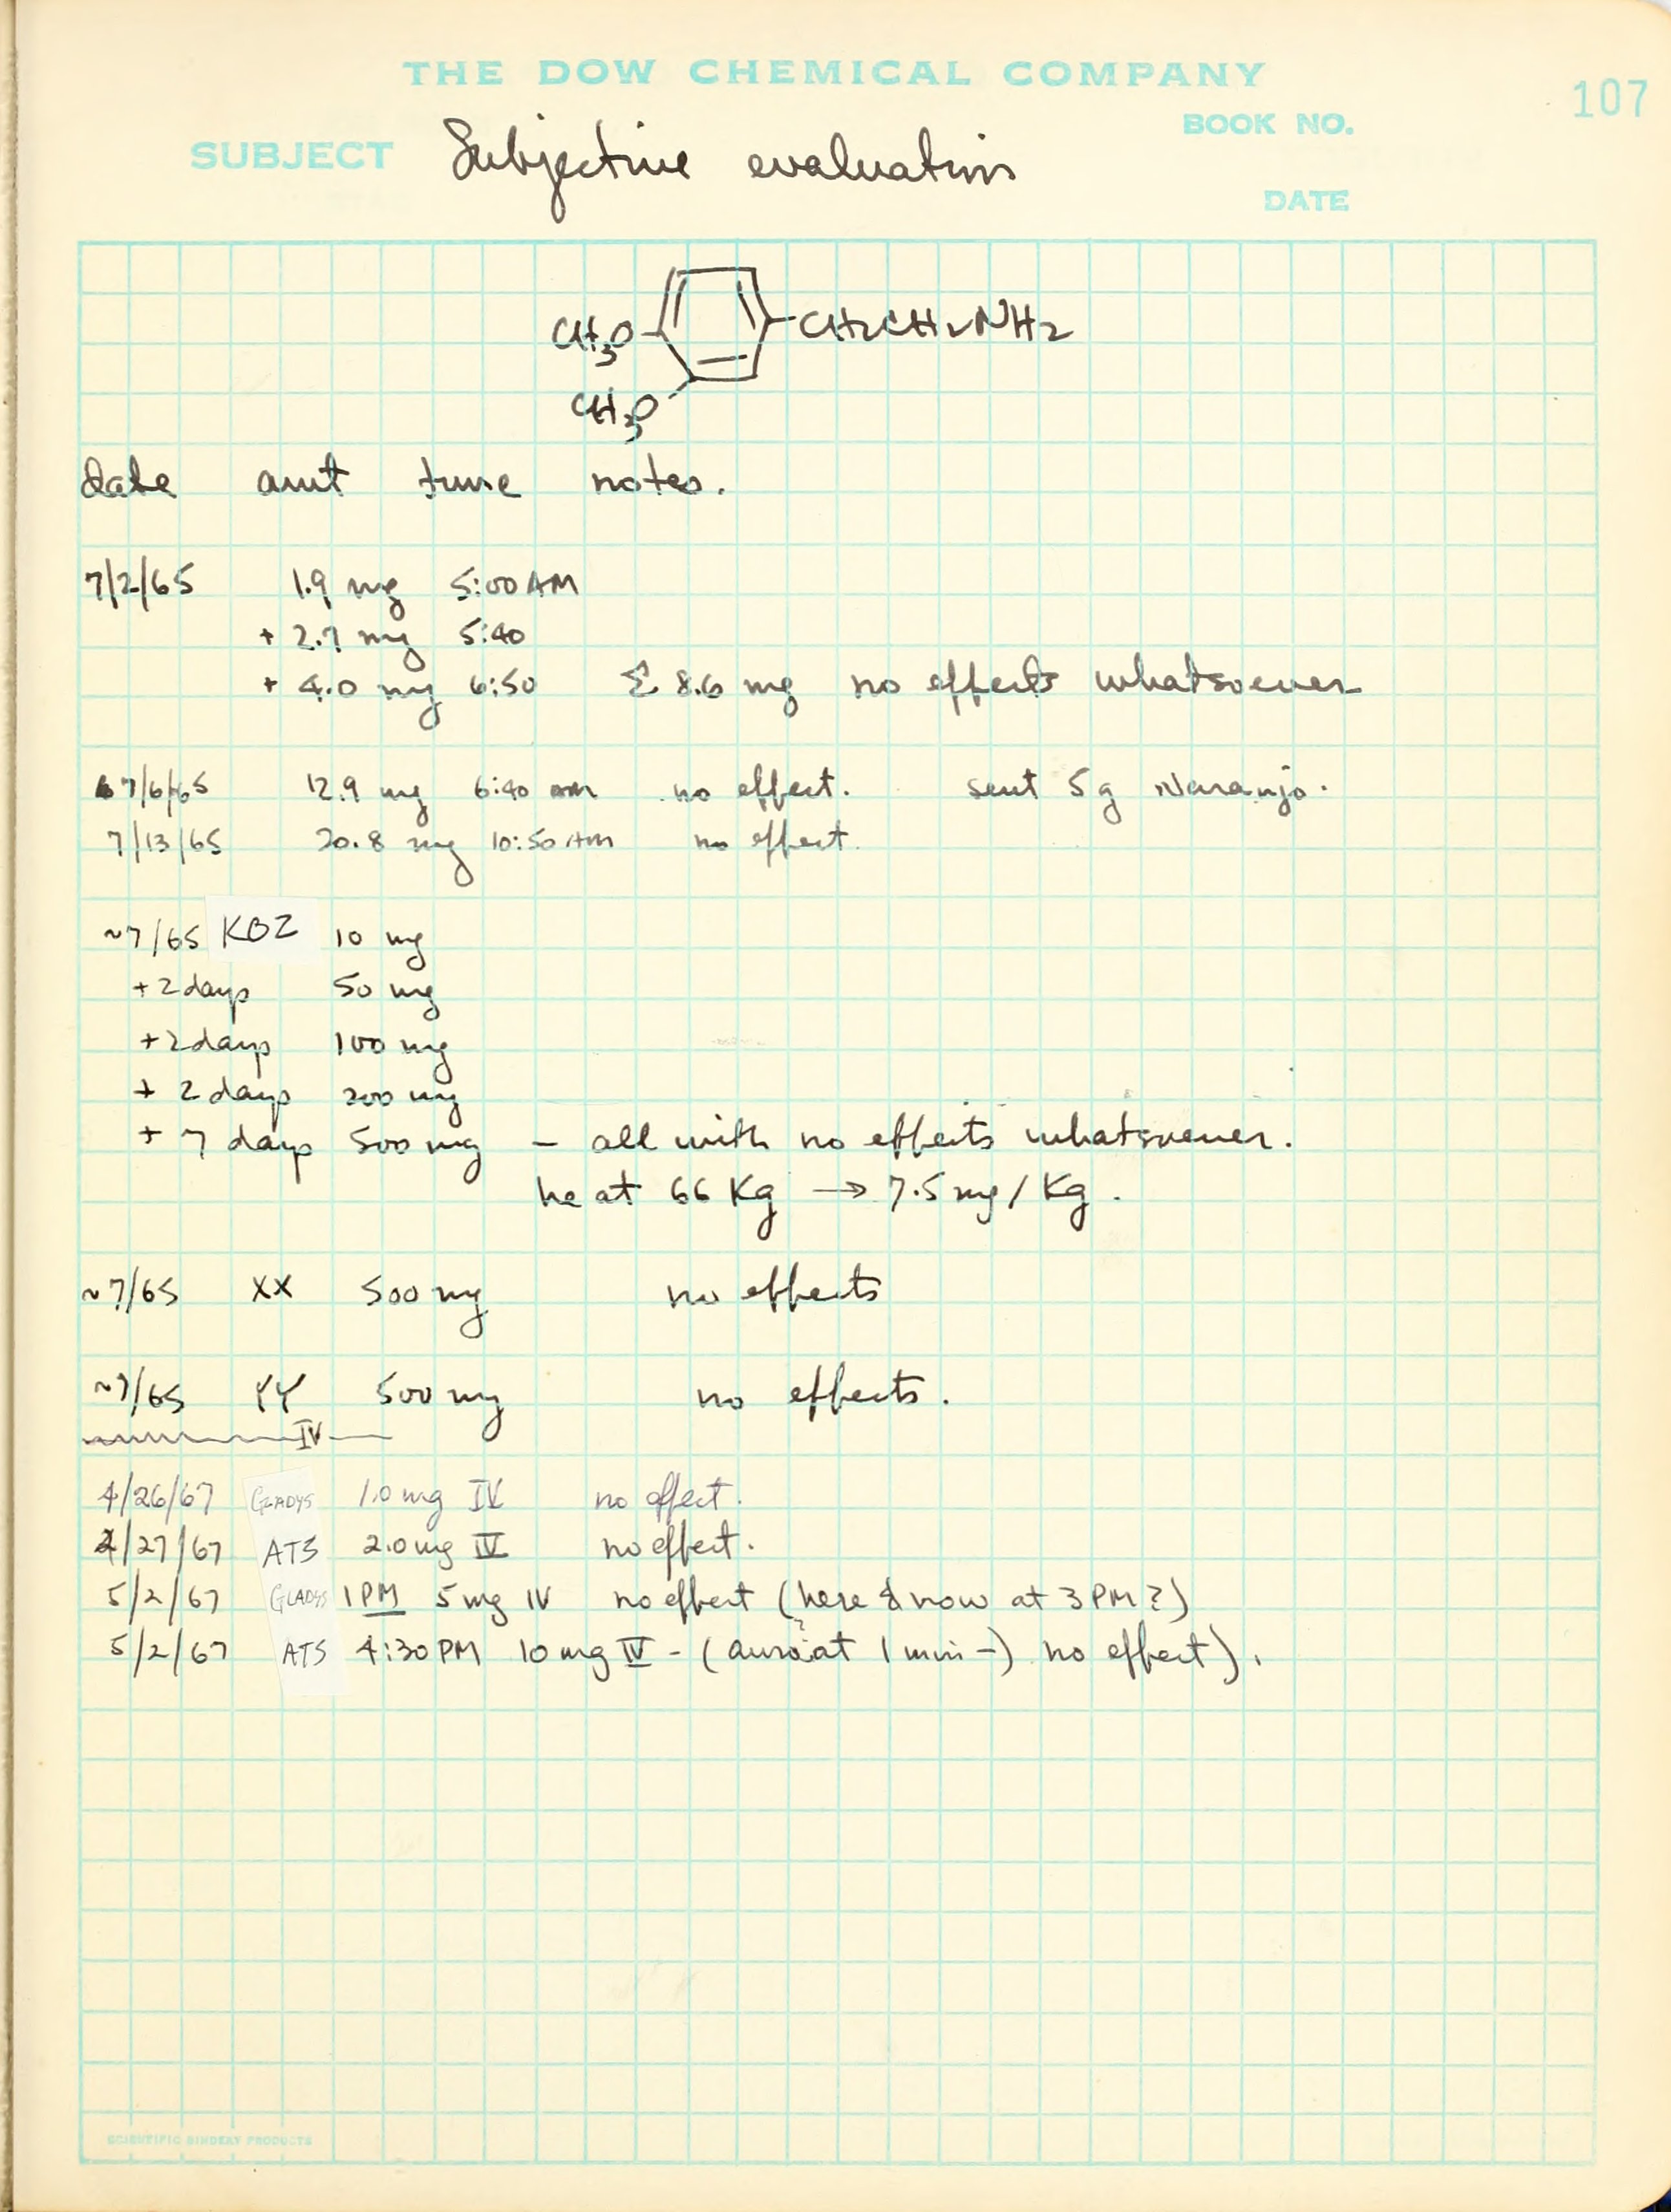 THE DOW CHEMICAL COMPANY
107
BOOK NO.
SUBJECT Subjective evaluation
DATE
CH3O CH2CH2NH2
CH3O
date amt time notes.
7/2/65 1.9 mg 5:00 AM
+ 2.7 mg 5:40
+ 4.0 mg 6:50 Σ 8.6 mg no effects whatsoever
7/6/65 12.9 mg 6:40 am no effect. sent 5g Naranjo.
7/13/65 20.8 mg 10:50 AM no effect.
~7/65 KOZ 10 mg
+2days 50 mg
+2days 100 mg
+ 2 days 200 mg
+ 7 days 500 mg – all with no effects whatsoever.
he at 66 Kg → 7.5 mg/Kg.
~7/65 XX 500 mg no effects
~7/65 YY 500 mg no effects.
IV
4/26/67 GLADYS 1.0 mg IV no effect.
4/27/67 ATS 2.0 mg IV no effect.
5/2/67 GLADYS 1 PM 5 mg IV no effect (here & now at 3 PM?)
5/2/67 ATS 4:30 PM 10 mg IV - ( at 1 min -) no effect).
SCIENTIFIC BINDERY PRODUCTS